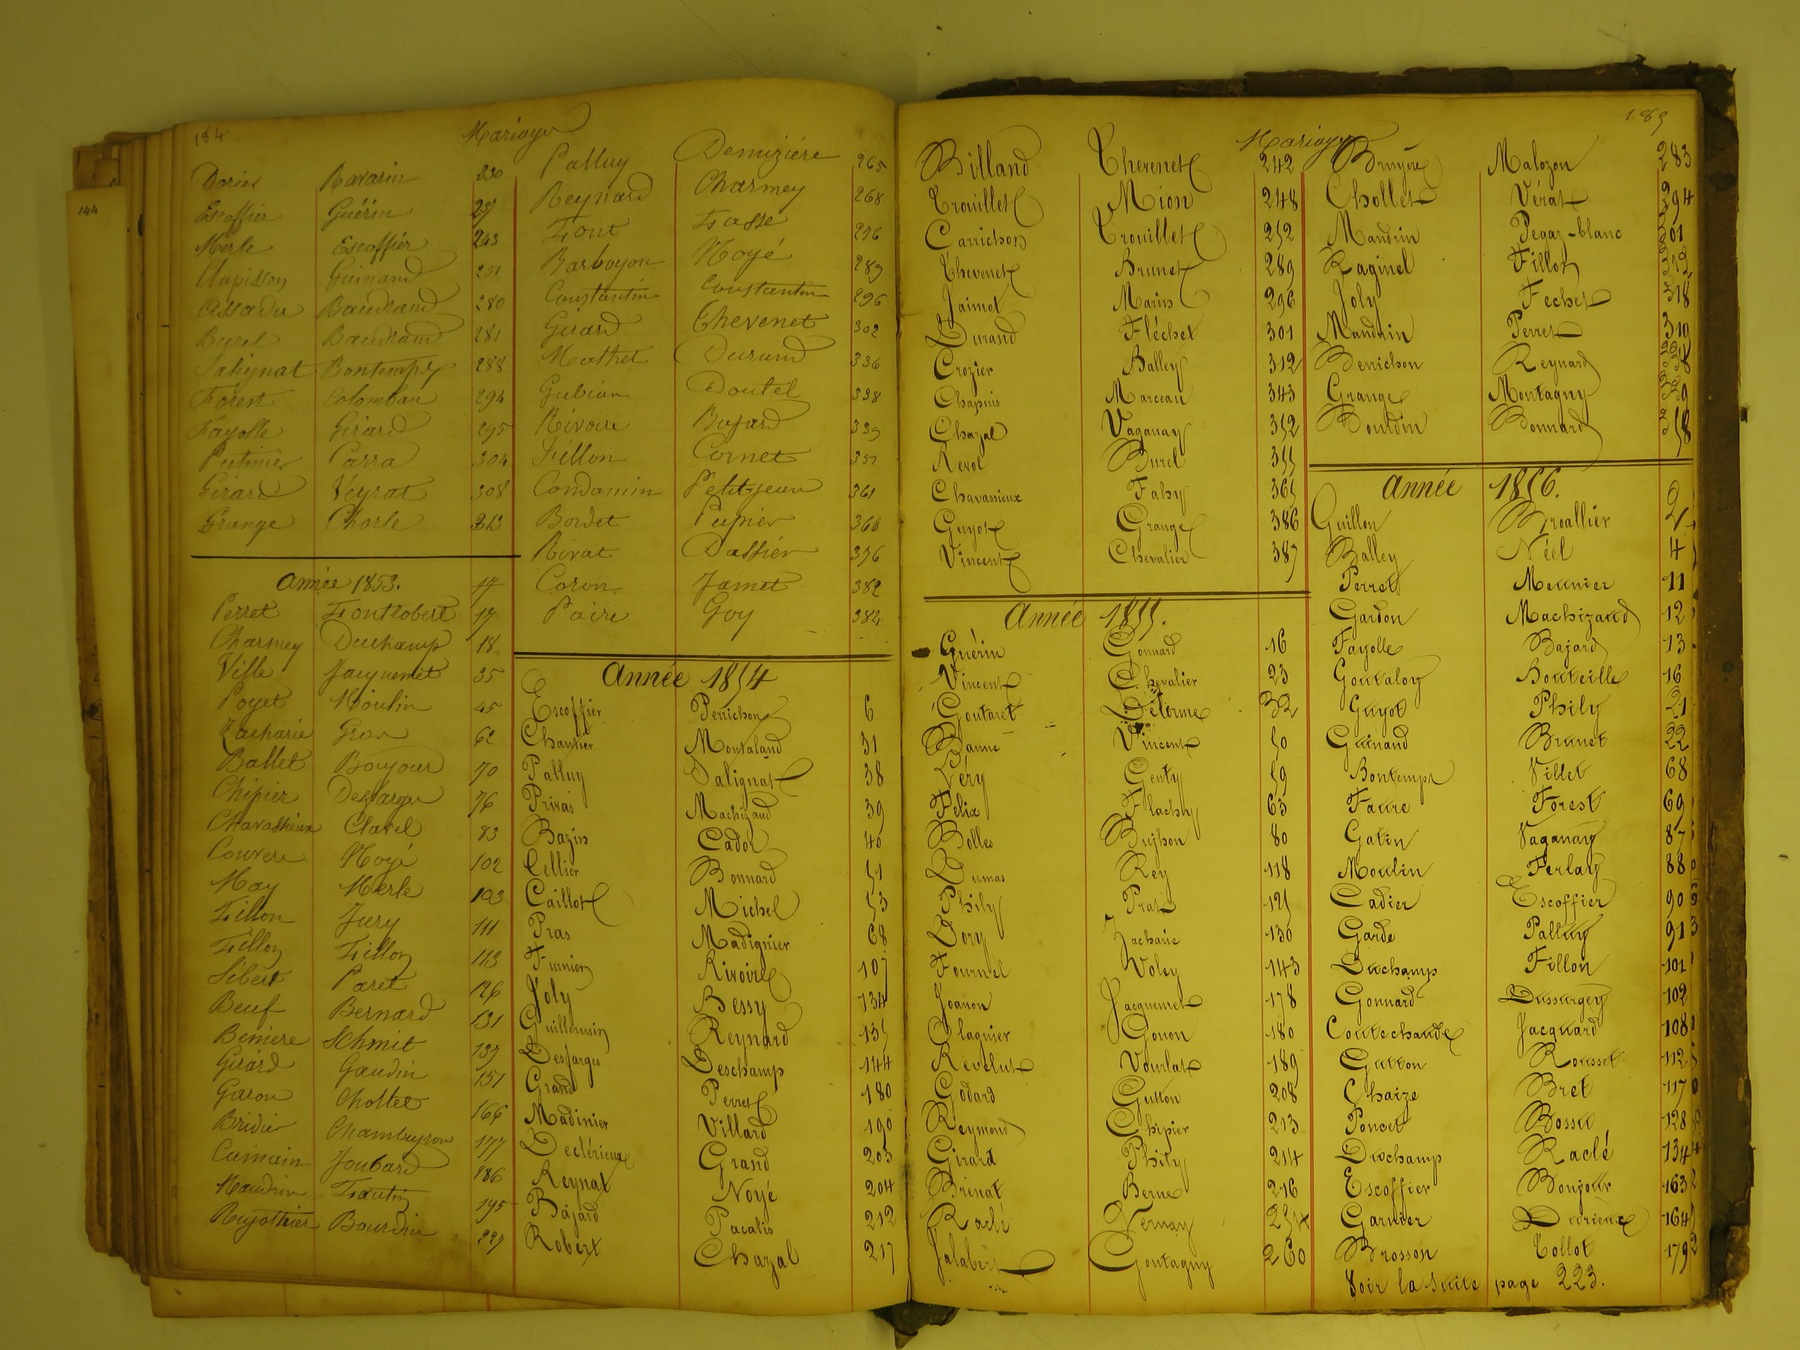 184
Mariages
Dorier Ravarin 230
Escoffier Guérin 237
Merle Escoffier 243
Clapisson Guinand 251
Baudrand 280
Burel Baudrand 281
Salignat Bontemps 288
Forest Colomban 294
Fayolle Girard 295
Putinier Carra 304
Girard Veyrat 308
Grange Chorle 313
Année 1853.
Perret Fontrobert 17
Charmey Duchamp 18
Ville Jacquemet 35
Poyet Moulin 45
Zacharie Gros 62
Ballet Boujour 70
Chipier Desfarges 76
Chavassieux Clavel 83
Couvert Noyé 102
May Merle 103
Fillon Jury 111
Fillon Fillon 113
Sibert Paret 126
Beuf Bernard 131
Beniere Schmit 137
Girard Gaudin 151
Garon Chollet 166
Bridier Chambeyron 177
Joubard 186
Maudrin Fautin 195
Bourdin 227
Palluy Demizière 265
Reynard Charmey 268
Font Fasse 276
Barboyon Noyé 289
Constantin Constantin 296
Girard Thevenet 302
Mathet Durand 336
Gubian Doutel 338
Rivoire Bajard 339
Fillon Cornet 351
Condamin Petitjean 361
Bordet Pupier 366
Rivat Dassier 376
Coron Jamet 382
Paire Goy 384
Année 1854
Escoffier Perrichon 6
Chantier Montaland 31
Palluy Salignat 38
Privas Machizaud 39
Bazin Cador 40
Cellier Bonnard 51
Caillot Michel 53
Pras Madignier 68
Rivoire 107
Joly Bessy 134
Guillermin Reynard 135
Desfarges Deschamp 144
Grand Perret 180
Madinier Villard 190
Declérieux Grand 203
Reynat Noyé 204
Bajard Pacalis 212
Robert Chazal 217
189
Mariages
Billand Thevenet 242
Trouillet Mion 248
Carrichon Trouillet 252
Thevenet Brunet 289
Jaimot Marin 296
Durand Fléchet 301
Crozier Balley 312
Chapuis Marceau 343
Chazal Vaganay 352
Revol Burel 355
Chavassieux Fahy 365
Guyot Grange 386
Vincent Chevalier 387
Année 1855.
Guérin Gonnard 16
Vincent Chevalier 23
Goutaret Delorme 32
Banne Vincent 50
Géry Genty 59
Félix Flachy 63
Bolles Bujhon 80
Dumas Rey 118
Phily Prat 125
Tory Zacharie 130
Fournel Voley 143
Joanon Jacquemet 178
Clagnier Gonon 180
Revelut Vourlat 189
Godard Gullon 208
Reymond Chipier 213
Girard Phily 214
Brenat Berne 216
Raclé Vernay
Jalabert Goutagny 260
Bruyere Malozon 283
Chollet Vérat 294
Mandrin Pegaz-blanc 301
Raginel Fillon 312
Joly Fechet 318
Mandrin Perret 319
Benichon Reynard
Grange Montagny
Bourdin Bonnard 358
Année 1856.
Guillon Broallier 2
Balley Néel 4
Perret Meunier 11
Gardon Machizaud 12
Fayolle Bajard 13
Goutaloy Bouteille 16
Guyot Phily 21
Guinand Brunet 22
Bontemps Villet 68
Faure Forest 69
Gatin Vaganay 87
Moulin Ferlay 88
Cadier Escoffier 90
Garde Palluy 91
Duchamp Fillon 101
Gonnard Dussurgey 102
Coutechaude Jacquard 108
Gutton Rousset 112
Chaize Bret 117
Poncet Bossu 128
Duchamp Raclé 134
Escoffier Bonjour 163
Garnier Durieux 164
Brosson Collot 179
Voir la suite page 223.
144